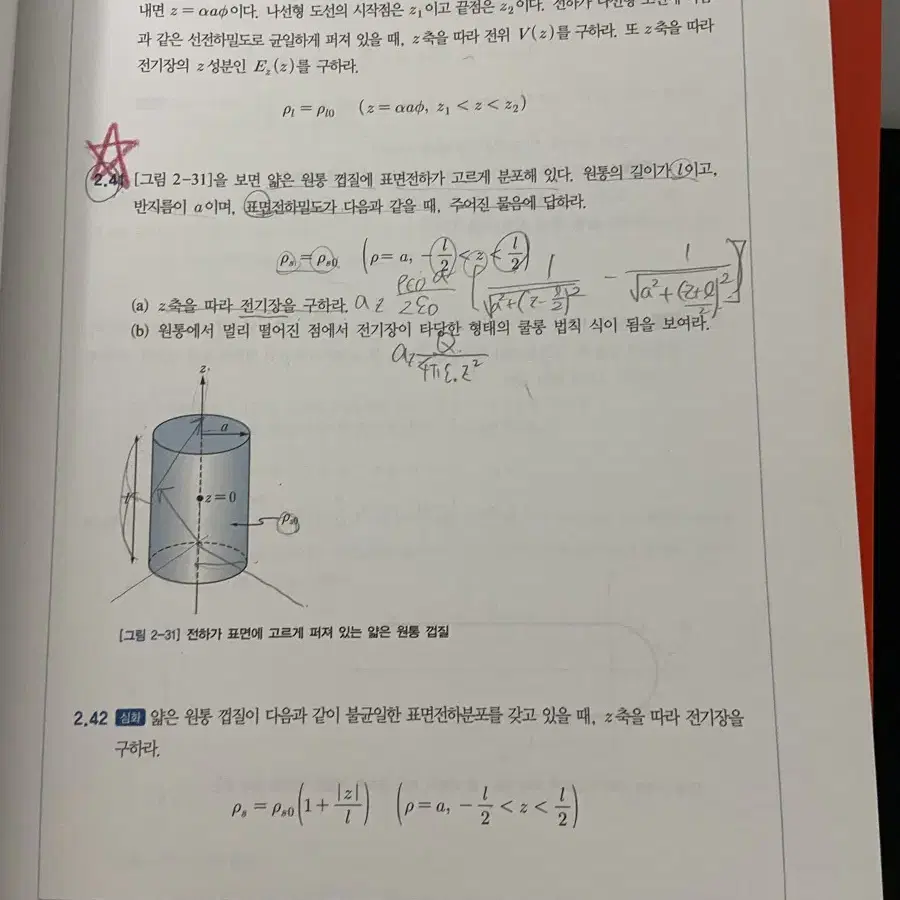 내면 z = αaϕ이다. 나선형 도선의 시작점은 z₁이고 끝점은 z₂이다. 전하가 나선형
과 같은 선전하밀도로 균일하게 퍼져 있을 때, z축을 따라 전위 V(z)를 구하라. 또 z축을 따라
전기장의 z성분인 E_z(z)를 구하라.
ρ_l = ρ_l0 (z = αaϕ, z₁ < z < z₂)
2.41 [그림 2-31]을 보면 얇은 원통 껍질에 표면전하가 고르게 분포해 있다. 원통의 길이가 l이고,
반지름이 a이며, 표면전하밀도가 다음과 같을 때, 주어진 물음에 답하라.
ρ_s = ρ_s0 (ρ = a, -l/2 < z < l/2)
(a) z축을 따라 전기장을 구하라. a_z [1/√(a²+(z-l/2)²) - 1/√(a²+(z+l/2)²)]
(b) 원통에서 멀리 떨어진 점에서 전기장이 타당한 형태의 쿨롱 법칙 식이 됨을 보여라.
a_z Q/4πε₀z²
z
a
l
z=0
ρ_s0
[그림 2-31] 전하가 표면에 고르게 퍼져 있는 얇은 원통 껍질
2.42 심화 얇은 원통 껍질이 다음과 같이 불균일한 표면전하분포를 갖고 있을 때, z축을 따라 전기장을
구하라.
ρ_s = ρ_s0(1 + |z|/l) (ρ = a, -l/2 < z < l/2)